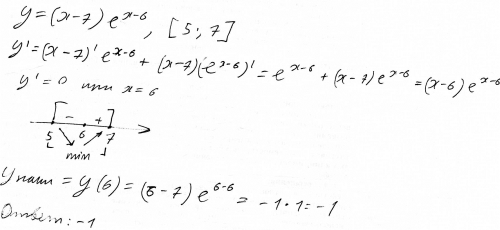 y=(x-7)e^{x-6}, [5; 7]
y'=(x-7)'e^{x-6}+(x-7)(e^{x-6})'=e^{x-6}+(x-7)e^{x-6}=(x-6)e^{x-6}
y'=0 при x=6
[ - + ]
5 6 7
min
y наим = y(6)=(6-7)e^{6-6}= -1·1=-1
Ответ: -1